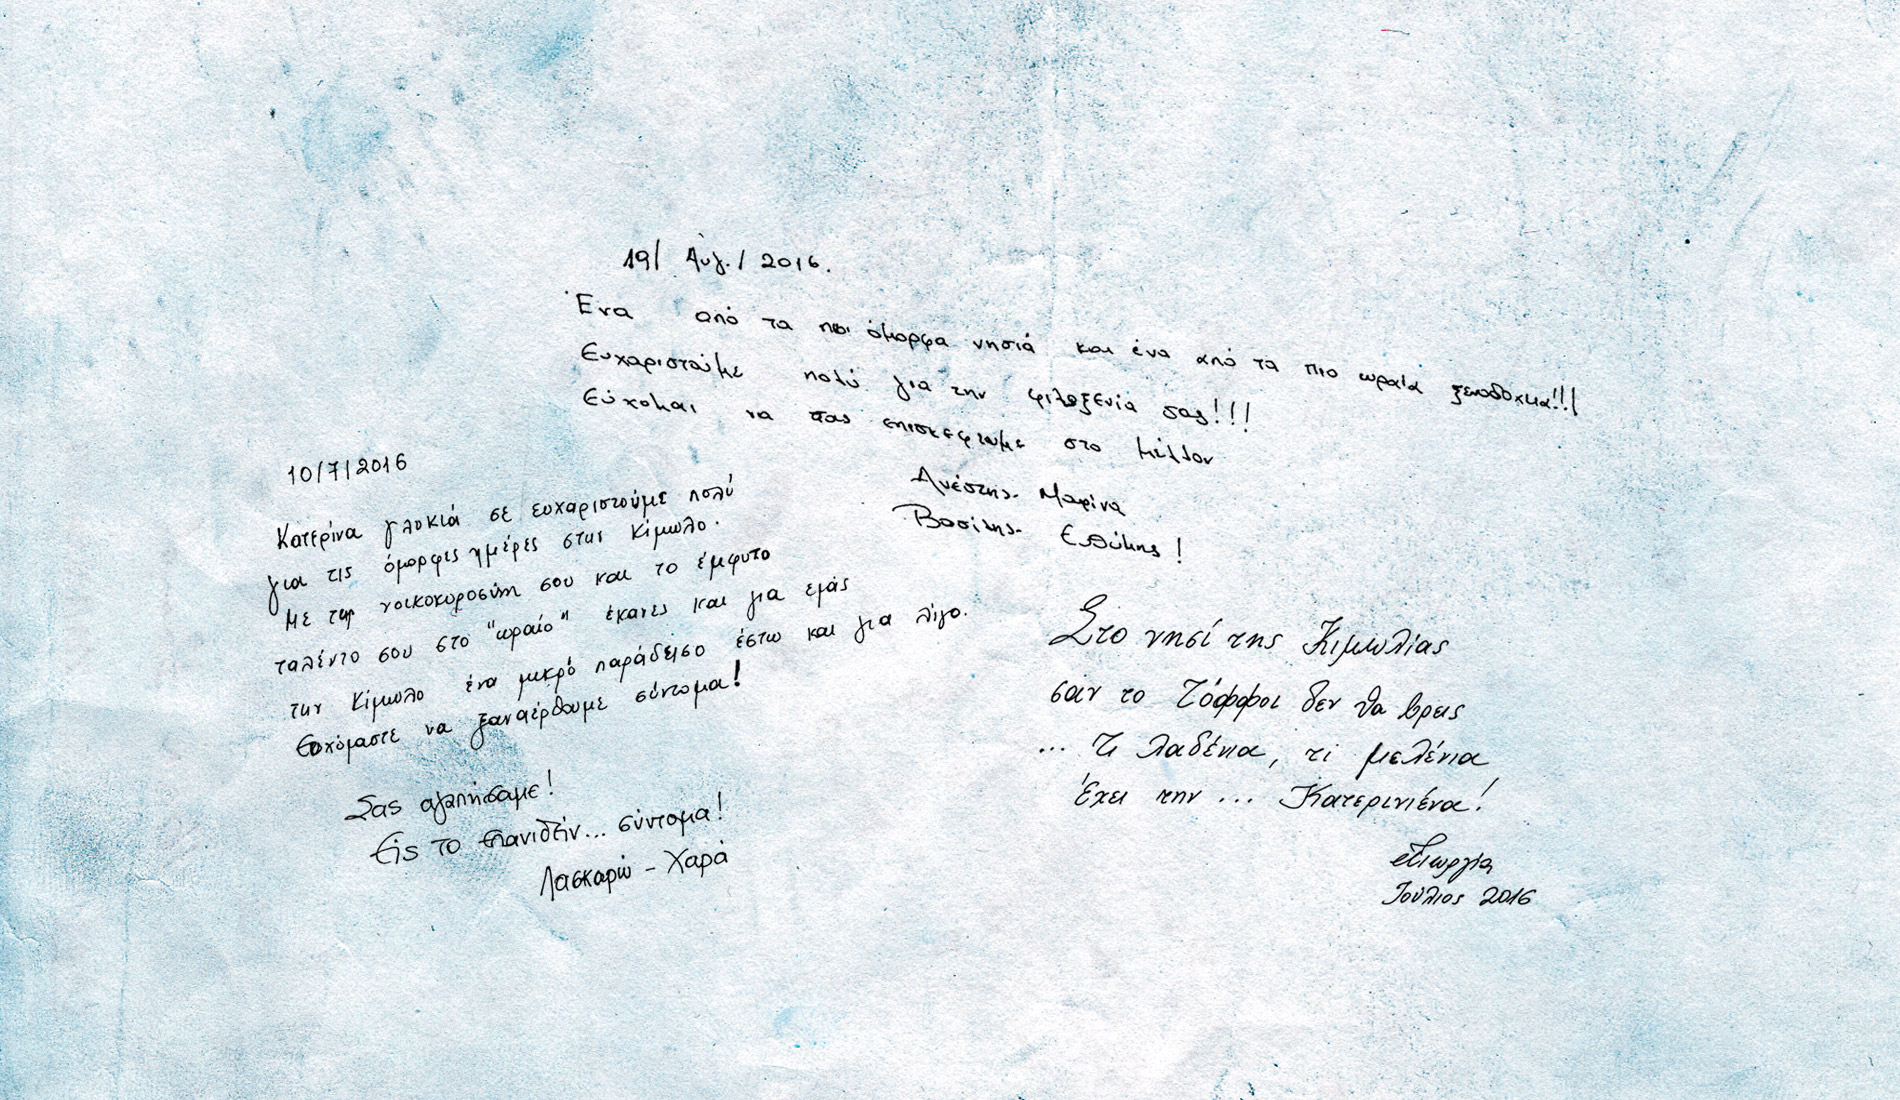 19/ Αυγ. / 2016.
Ένα από τα πιο όμορφα νησιά και ένα από τα πιο ωραία ξενοδοχεία!!!
Ευχαριστούμε πολύ για την φιλοξενία σας!!!
Εύχομαι να σας επισκεφτούμε στο μέλλον
Ανέστης - Μαρίνα
Βασίλης - Ευθύμης!
10/7/2016
Κατερίνα γλυκιά σε ευχαριστούμε πολύ
για τις όμορφες ημέρες στην Κίμωλο.
Με την νοικοκυροσύνη σου και το έμφυτο
ταλέντο σου στο "ωραίο" έκανες και για εμάς
την Κίμωλο ένα μικρό παράδεισο έστω και για λίγο.
Ευχόμαστε να ξαναέρθουμε σύντομα!
Σας αγαπήσαμε!
Εις το επανιδείν... σύντομα!
Λασκαρώ - Χαρά
Στο νησί της Κιμωλίας
σαν το Τόφφοι δεν θα βρεις
... Τι λαδένια, τι μελένια
Έχει την ... Κατερινιένα!
Γιωργία
Ιούλιος 2016